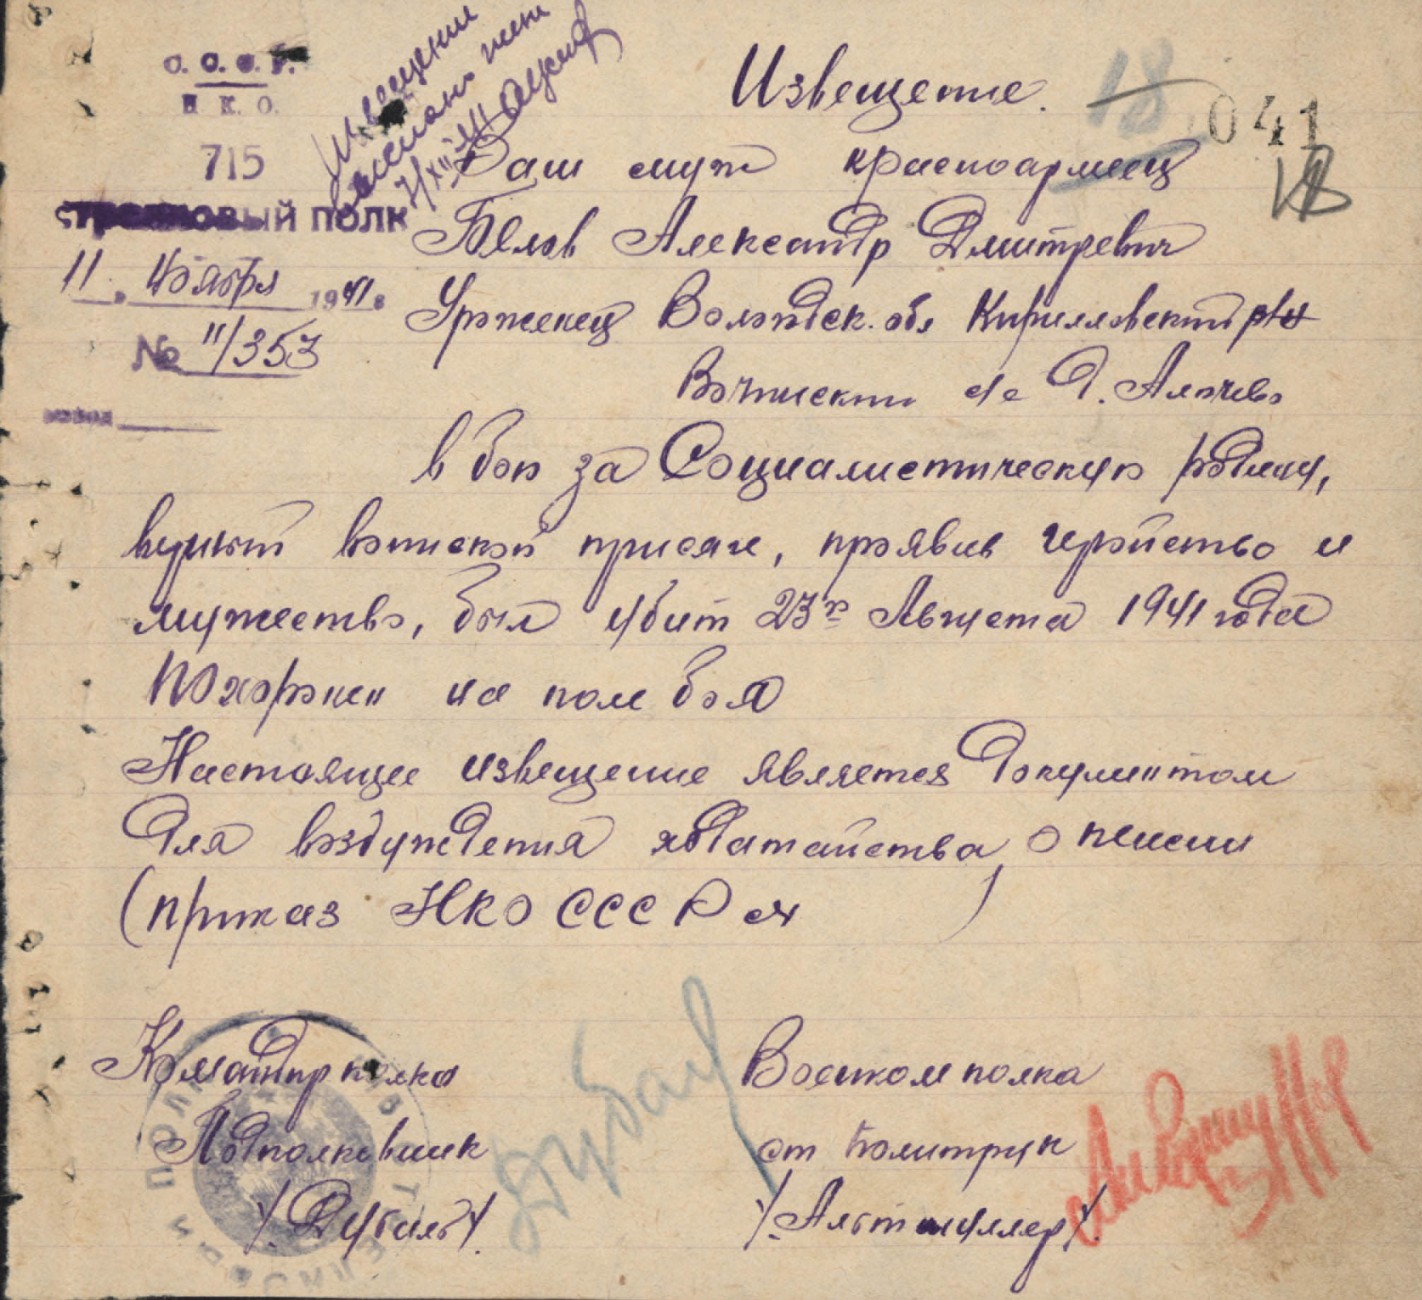 С.С.С.Р.
Н.К.О.
715
стрелковый полк
11. ноября 1941 г.
№ 11/353
Извещение
жене
7/XII-41
18
041
18
Извещение.
Ваш муж красноармеец
Белов Александр Дмитревич
Уроженец Волгодск. обл Кирилловский р/н
с/с Д.
в бою за Социалистическую родину,
верный воинской присяге, проявив геройство и
мужество, был убит 23го Августа 1941 года
Похоронен на поле боя
Настоящее извещение является документом
для возбуждения ходатайства о пенсии
(приказ НКО СССР №)
Командир полка
Подполковник
/.Дубаль/.
Военком полка
ст политрук
/.Альтмуллер/.